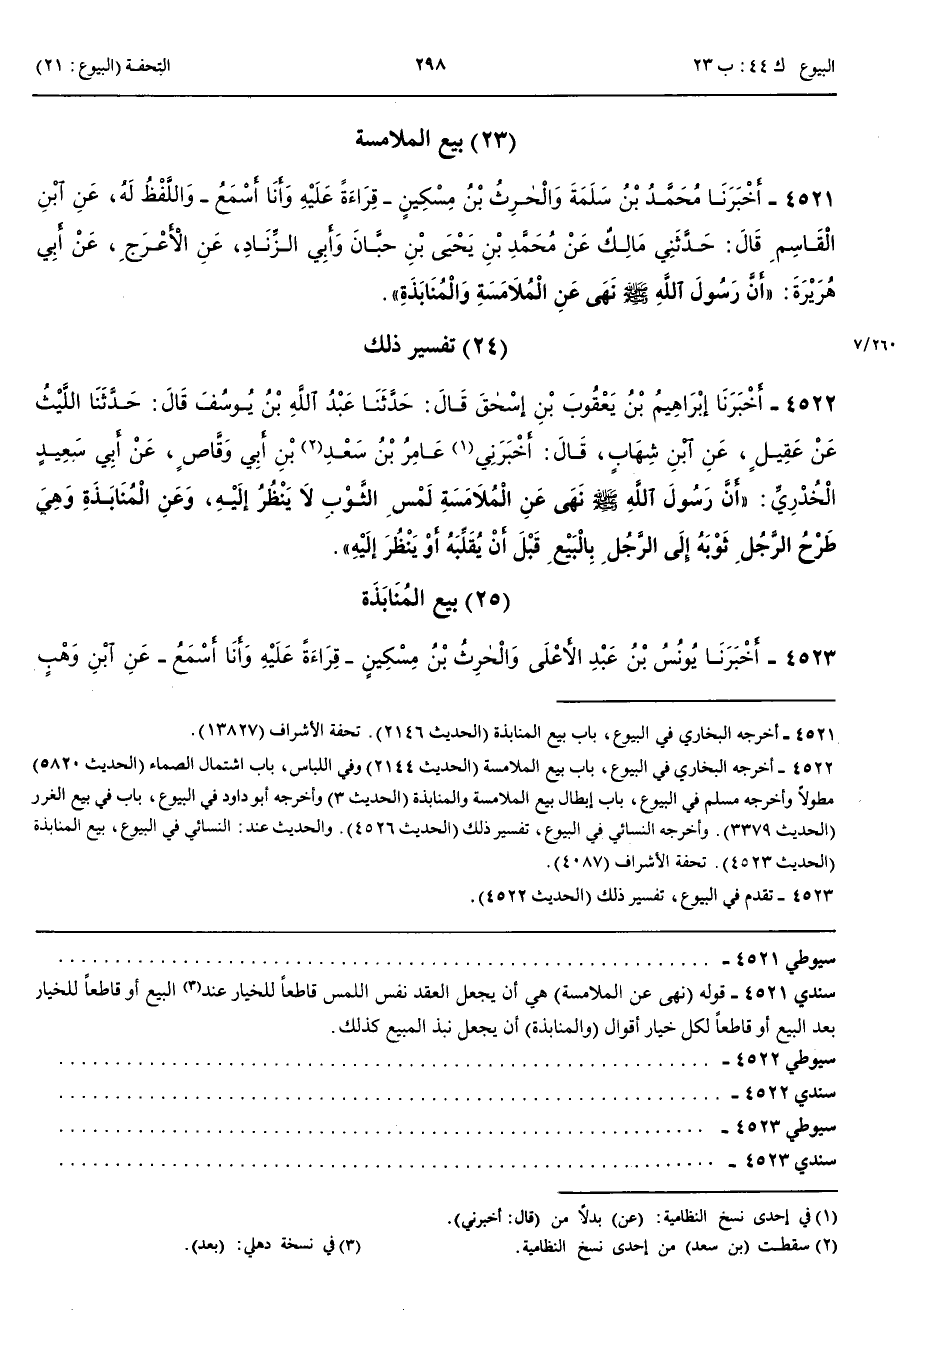 البيوع ك ٤٤: ب ٢٣ ٢٩٨ التحفة (البيوع: ٢١)
(٢٣) بيع الملامسة
٤٥٢١ ـ أَخْبَرَنَـا مُحَمَّـدُ بْـنُ سَلَمَةَ وَالْحٰرِثُ بْنُ مِسْكِينٍ ـ قِرَاءَةً عَلَيْهِ وَأَنَا أَسْمَعُ ـ وَاللَّفْظُ لَهُ، عَنِ ٱبْنِ
الْقَـاسِمِ قَالَ: حَدَّثَنِي مَالِـكٌ عَنْ مُحَمَّدِ بْنِ يَحْيَى بْنِ حبَّانَ وَأَبِي الـزِّنَـادِ، عَنِ الْأَعْرَجِ، عَنْ أَبِي
هُرَيْرَةَ: «أَنَّ رَسُولَ ٱللَّهِ ﷺ نَهَى عَنِ الْمُلَامَسَةِ وَالْمُنَابَذَةِ».
(٢٤) تفسير ذلك
٧/٢٦٠
٤٥٢٢ ـ أَخْبَرَنَا إِبْرَاهِيمُ بْنُ يَعْقُوبَ بْنِ إِسْحٰقَ قَـالَ: حَدَّثَنَـا عَبْدُ ٱللَّهِ بْنُ يُـوسُفَ قَالَ: حَـدَّثَنَا اللَّيْثُ
عَنْ عَقِيـلٍ، عَنِ ٱبْنِ شِهَابٍ، قَـالَ: أَخْبَرَنِي(١) عَـامِرُ بْنُ سَعْـدِ(٢) بْنِ أَبِي وَقَّاصٍ، عَنْ أَبِي سَعِيـدٍ
الْخُدْرِيِّ: «أَنَّ رَسُولَ ٱللَّهِ ﷺ نَهَى عَنِ الْمُلَامَسَةِ لَمْسِ الثَّوْبِ لَا يَنْظُرُ إِلَيْهِ، وَعَنِ الْمُنَابَذَةِ وَهِيَ
طَرْحُ الرَّجُلِ ثَوْبَهُ إِلَى الرَّجُلِ بِالْبَيْعِ قَبْلَ أَنْ يُقَلِّبَهُ أَوْ يَنْظُرَ إِلَيْهِ».
(٢٥) بيع المُنَابَذَة
٤٥٢٣ ـ أَخْبَرَنَـا يُونُسُ بْنُ عَبْدِ الْأَعْلَى وَالْحٰرِثُ بْنُ مِسْكِينٍ ـ قِرَاءَةً عَلَيْهِ وَأَنَا أَسْمَعُ ـ عَنِ ٱبْنِ وَهْبٍ
٤٥٢١ ـ أخرجه البخاري في البيوع، باب بيع المنابذة (الحديث ٢١٤٦). تحفة الأشراف (١٣٨٢٧).
٤٥٢٢ ـ أخرجه البخاري في البيوع، باب بيع الملامسة (الحديث ٢١٤٤) وفي اللباس، باب اشتمال الصماء (الحديث ٥٨٢٠)
مطولاً وأخرجه مسلم في البيوع، باب إبطال بيع الملامسة والمنابذة (الحديث ٣) وأخرجه أبو داود في البيوع، باب في بيع الغرر
(الحديث ٣٣٧٩). وأخرجه النسائي في البيوع، تفسير ذلك (الحديث ٤٥٢٦). والحديث عند: النسائي في البيوع، بيع المنابذة
(الحديث ٤٥٢٣). تحفة الأشراف (٤٠٨٧).
٤٥٢٣ ـ تقدم في البيوع، تفسير ذلك (الحديث ٤٥٢٢).
سيوطي ٤٥٢١ ـ . . . . . . . . . . . . . . . . . . . .
سندي ٤٥٢١ ـ قوله (نهى عن الملامسة) هي أن يجعل العقد نفس اللمس قاطعاً للخيار عند(٣) البيع أو قاطعاً للخيار
بعد البيع أو قاطعاً لكل خيار أقوال (والمنابذة) أن يجعل نبذ المبيع كذلك.
سيوطي ٤٥٢٢ ـ . . . . . . . . . . . . . . . . . . . .
سندي ٤٥٢٢ ـ . . . . . . . . . . . . . . . . . . . .
سيوطي ٤٥٢٣ ـ . . . . . . . . . . . . . . . . . . . .
سندي ٤٥٢٣ ـ . . . . . . . . . . . . . . . . . . . .
(١) في إحدى نسخ النظامية: (عن) بدلاً من (قال: أخبرني).
(٢) سقطت (بن سعد) من إحدى نسخ النظامية. (٣) في نسخة دهلي: (بعد).